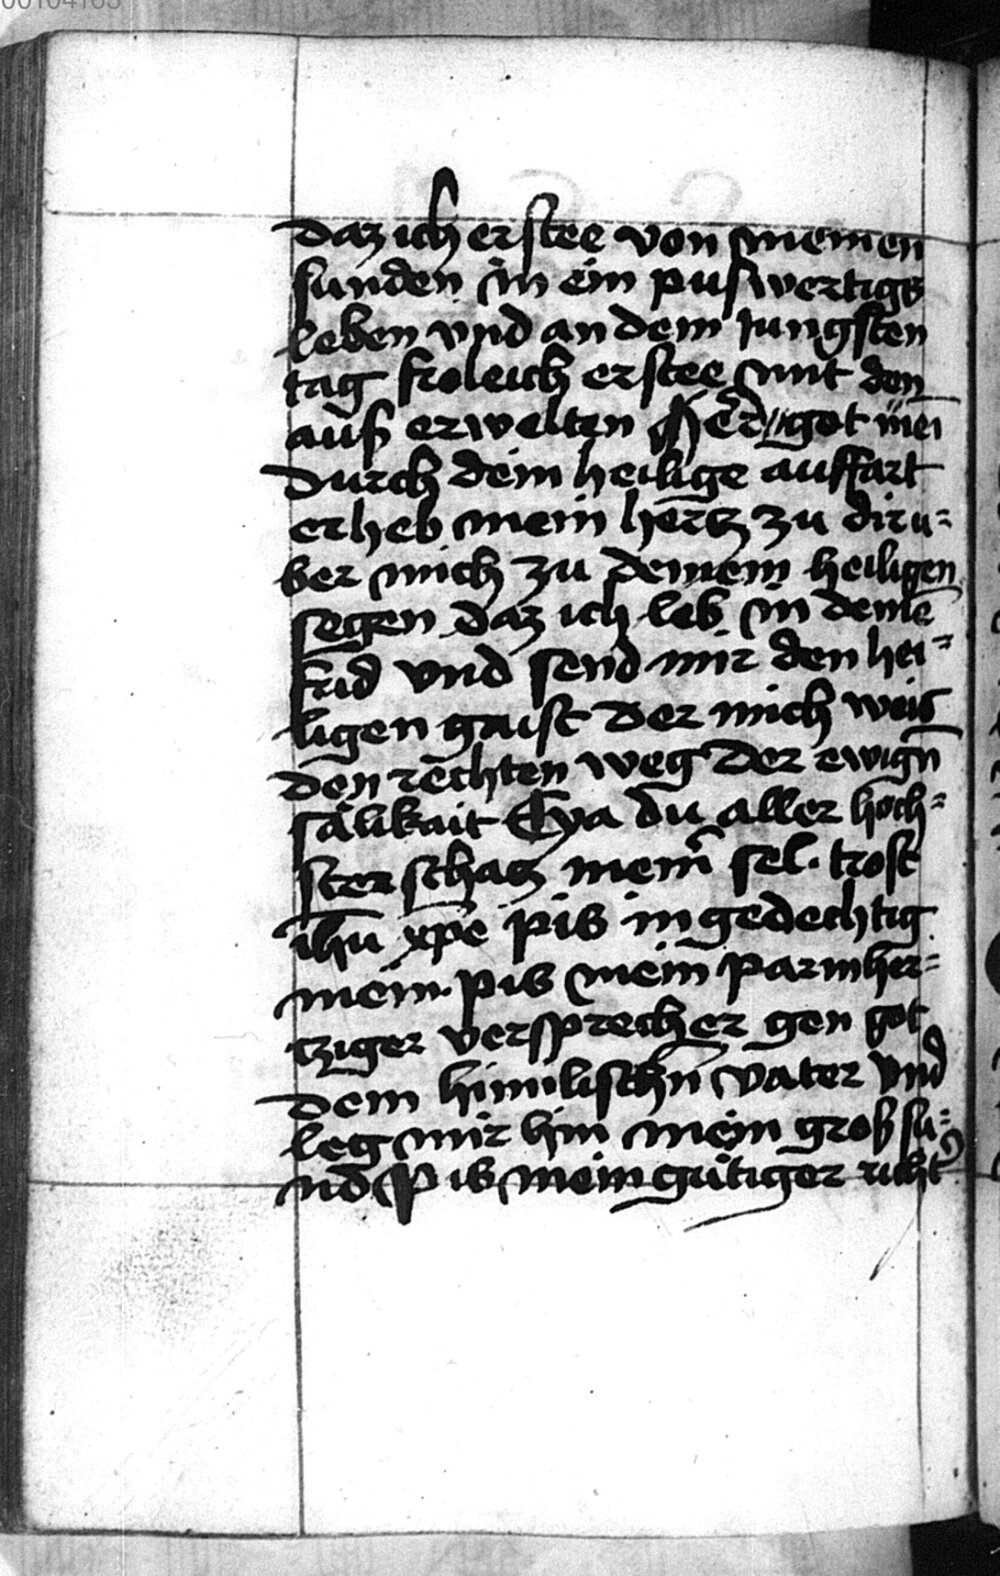 00104163
daz ich erstee von meinen
sunden in ein puswertigs
leben vnd an dem Jungsten
tag froleich erstee mit den
auß erwelten Herr got mei
durch dein heilige auffart
erheb mein hertz zu dir u=
ber mich zu deinem heiligen
segen daz ich leb in deinē
frid vnd send mir den hei=
ligen gaist der mich weis
den rechten weg der ewign̄
sälikait Eya du aller höch=
ster schatz meinr̄ sel. trost
ihū xp̄e pis ingedechtig
mein. pis mein parmher=
cziger versprecher gen got
dem himilischn̄ vater vnd
leg mir hin mein groß su=
nd Pis mein gütiger richt̉